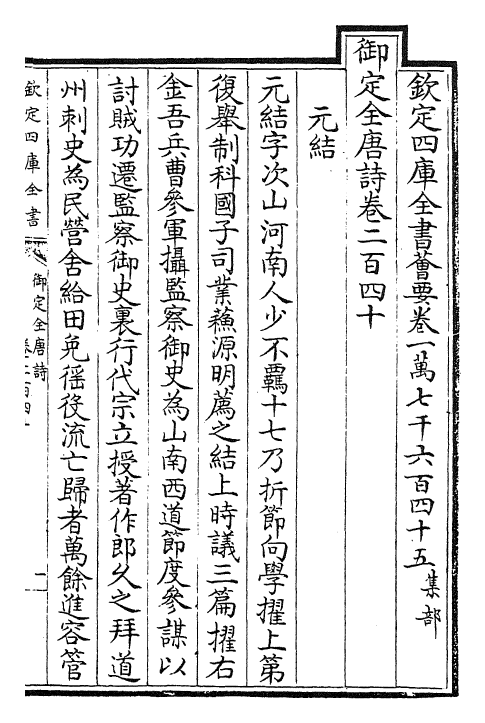 欽定四庫全書薈要卷一萬七千六百四十五集部
御定全唐詩卷二百四十
元結
元結字次山河南人少不羈十七乃折節向學擢上第
復舉制科國子司業蘇源明薦之結上時議三篇擢右
金吾兵曹參軍攝監察御史為山南西道節度參謀以
討賊功遷監察御史裏行代宗立授著作郎久之拜道
州刺史為民營舍給田免徭役流亡歸者萬餘進容管
欽定四庫全書
御定全唐詩
卷二百四十
一